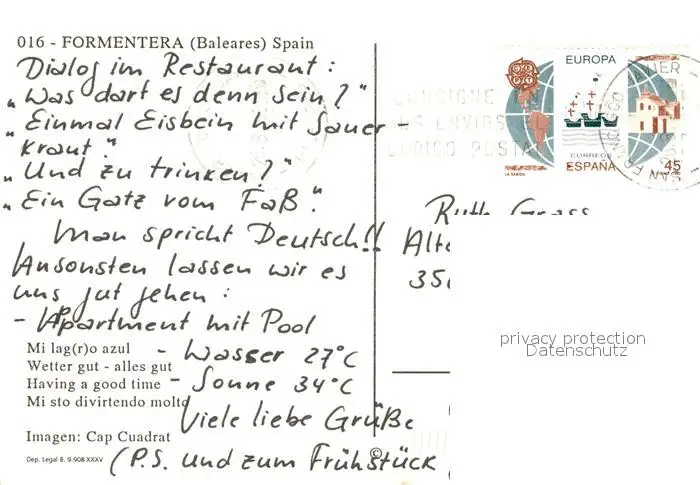 016 - FORMENTERA (Baleares) Spain
Dialog im Restaurant:
„Was darf es denn sein?"
„Einmal Eisbein mit Sauer
kraut."
„Und zu trinken?"
„Ein Gatz vom Faß".
Man spricht Deutsch!!
Ansonsten lassen wir es
uns gut gehen:
- Apartment mit Pool
- Wasser 27°C
- Sonne 34°C
Viele liebe Grüße
(P.S. und zum Frühstück
Mi lag(r)o azul
Wetter gut - alles gut
Having a good time
Mi sto divirtendo molto
Imagen: Cap Cuadrat
Dep. Legal B. 9.908-XXXV
©
EUROPA
CORREOS
ESPAÑA
45
LA RABIDA
CONSIGNE
SUS ENVIOS
CODIGO POSTAL
SAN FRANCISCO JAVIER
Ruth Grass
Alte
35
privacy protection
Datenschutz